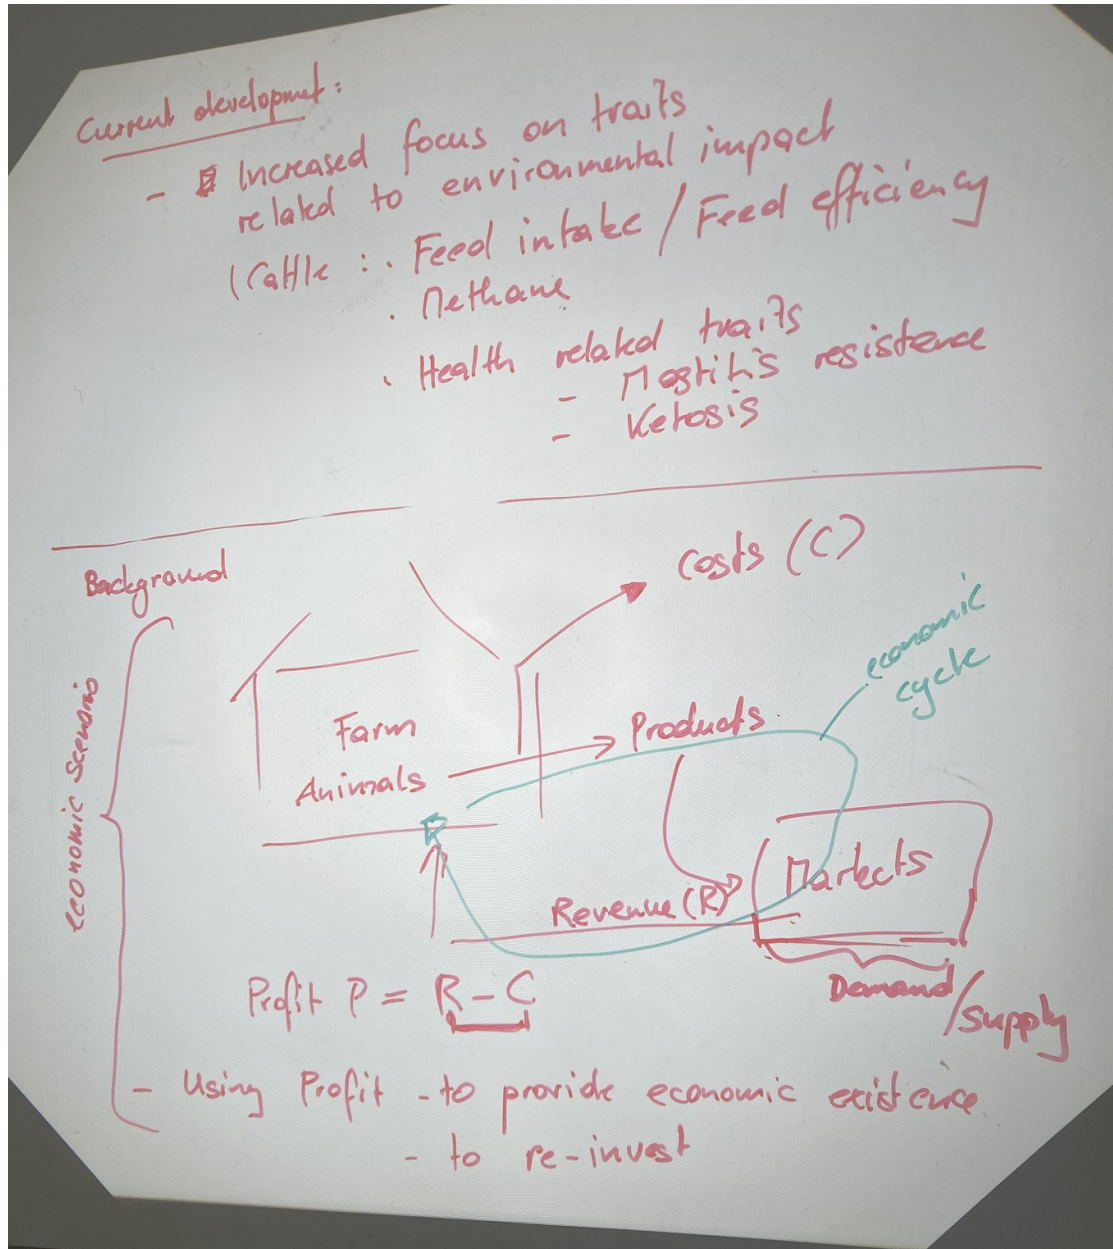 Current development:
- Increased focus on traits
related to environmental impact
(Cattle : . Feed intake / Feed efficiency
. Methane
. Health related traits
- Mastitis resistence
- Ketosis
Background
Costs (C)
economic
cycle
Economic Scenario
Farm
Animals
Products
Markets
Revenue (R)
Demand
/supply
Profit P = R - C
- Using Profit - to provide economic existence
- to re-invest